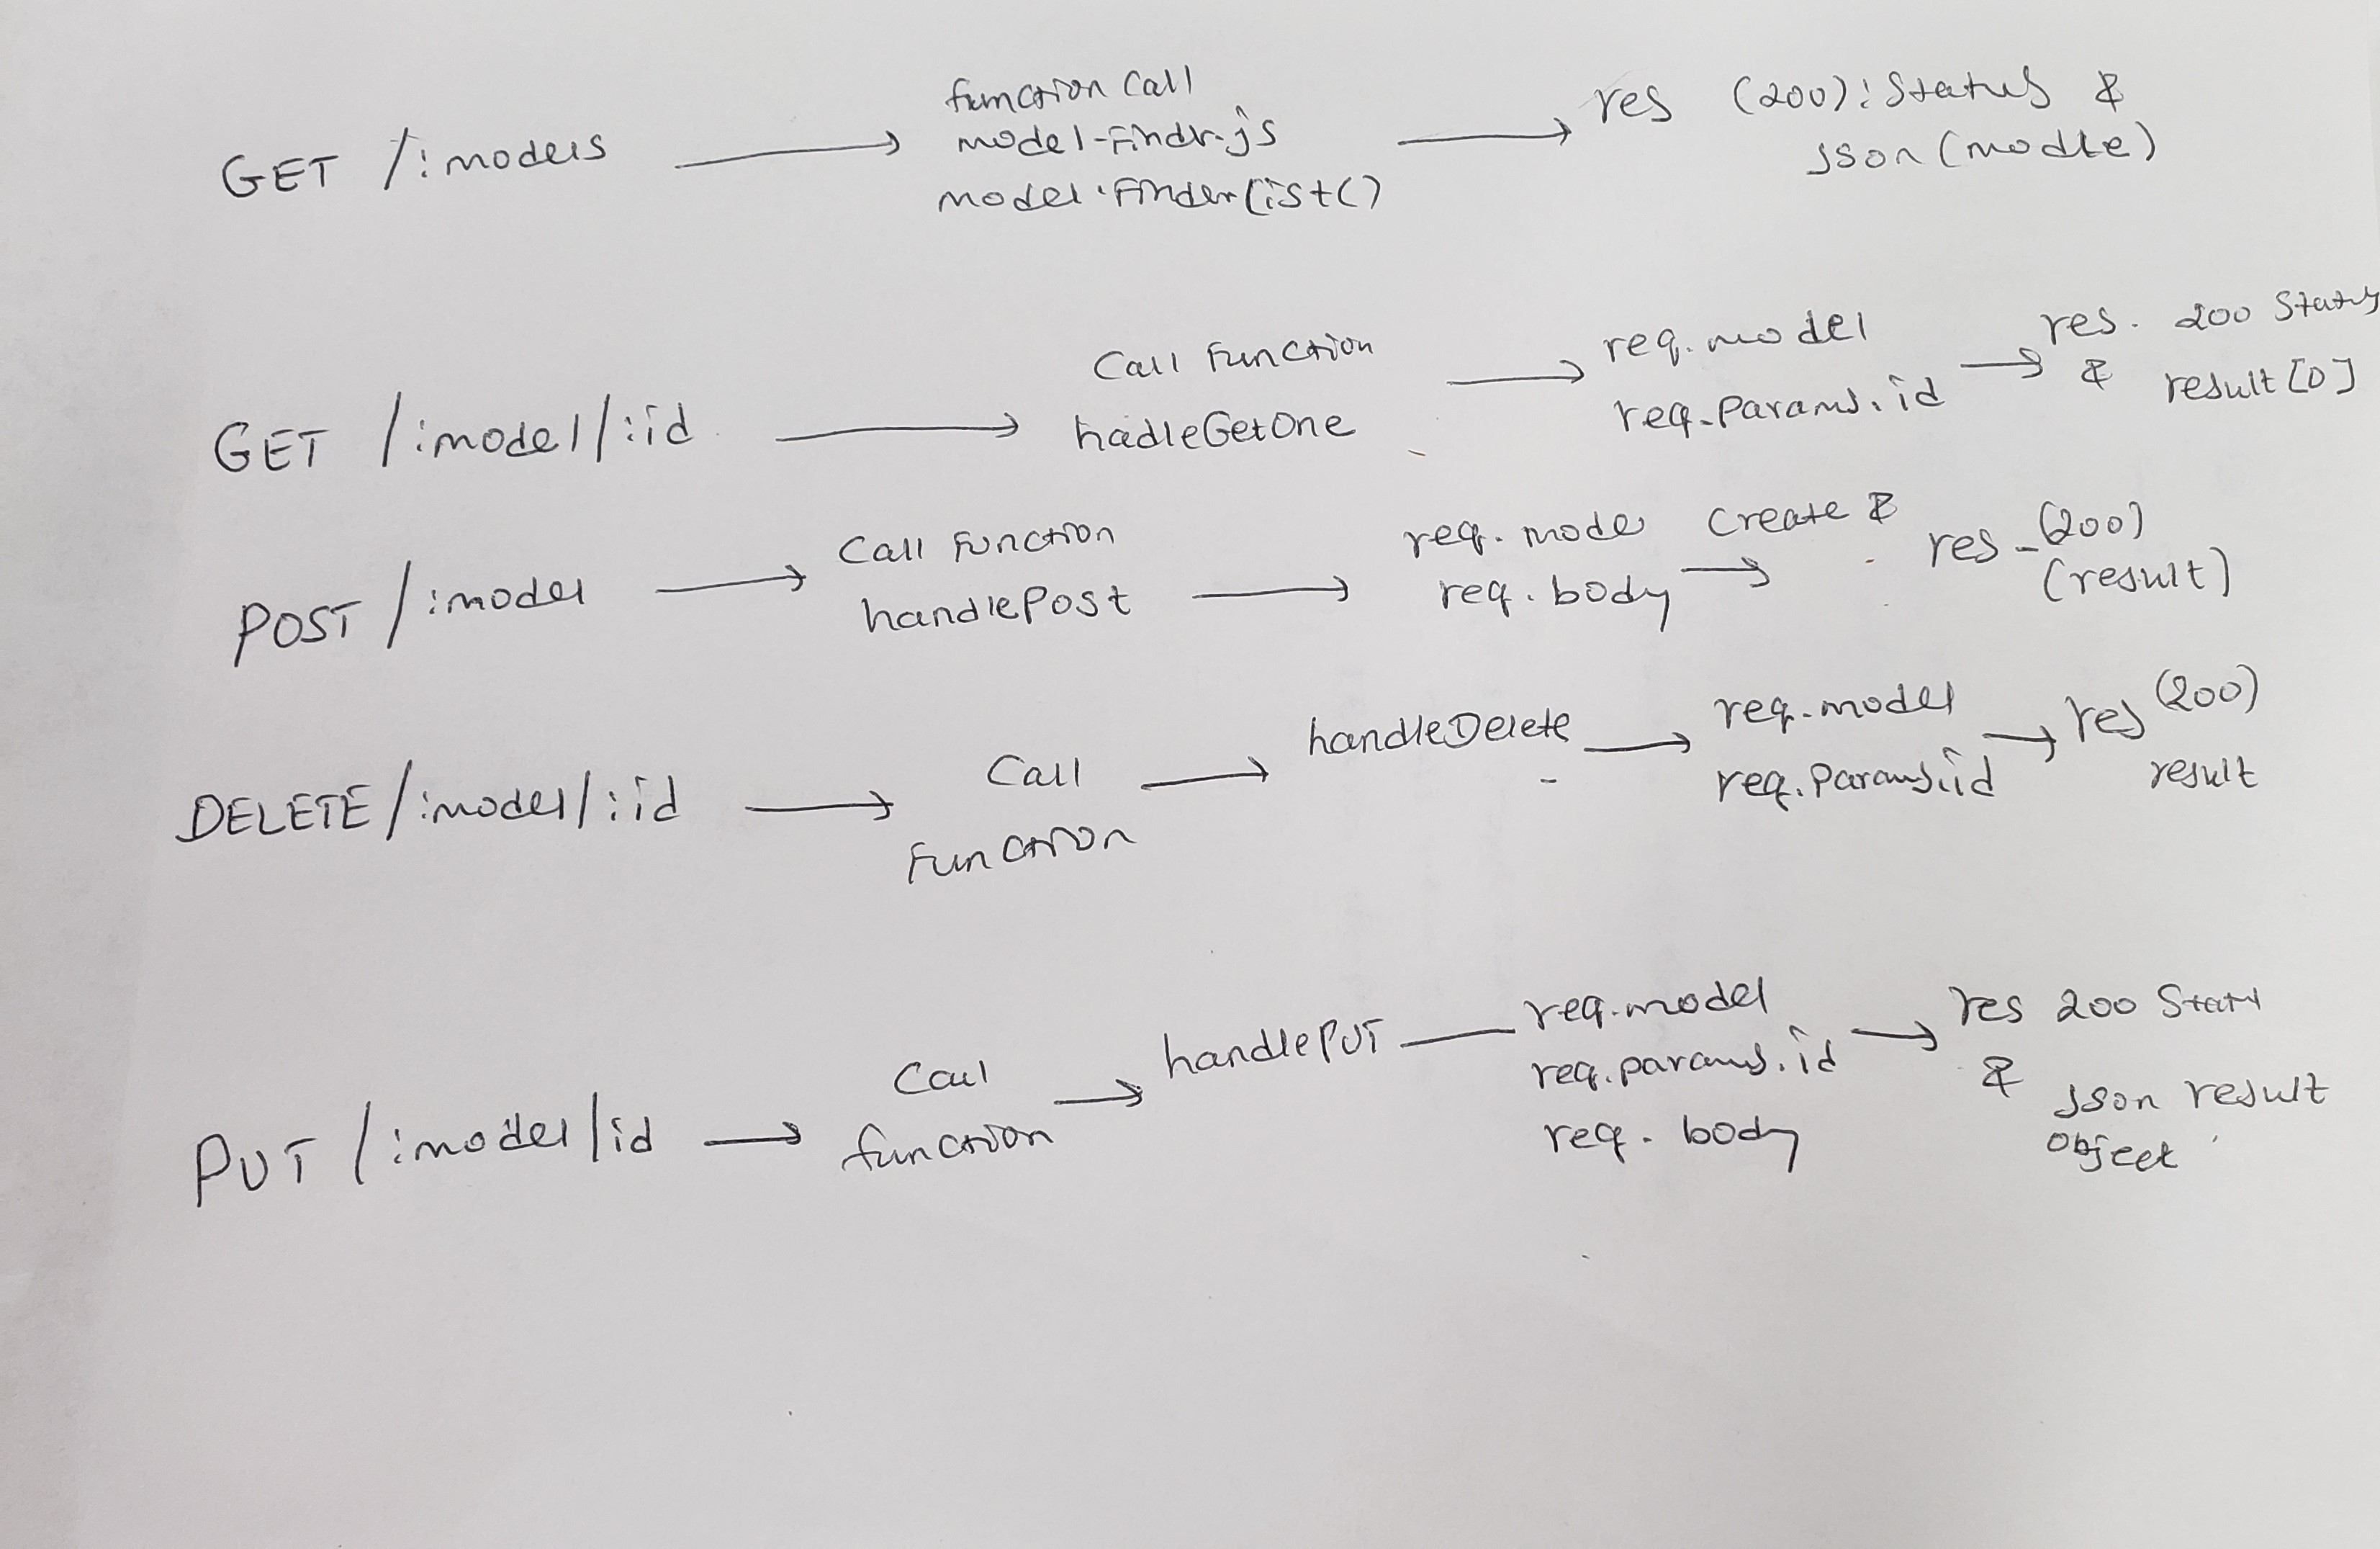 GET /:models
function Call
model-Findr.js
model.Finderlist()
res (200): Status &
json (modle)
GET /:model/:id
Call Function
hadleGetOne
req.model
req.params.id
res. 200 Status
& result [0]
POST /:model
Call Function
handlePost
req. model Create &
req. body
res - (200)
(result)
DELETE /:model/:id
Call
Function
handleDelete
req.model
req.Params.id
res (200)
result
PUT /:model/id
Call
function
handlePUT
req.model
req.params.id
req. body
res 200
&
json result
object